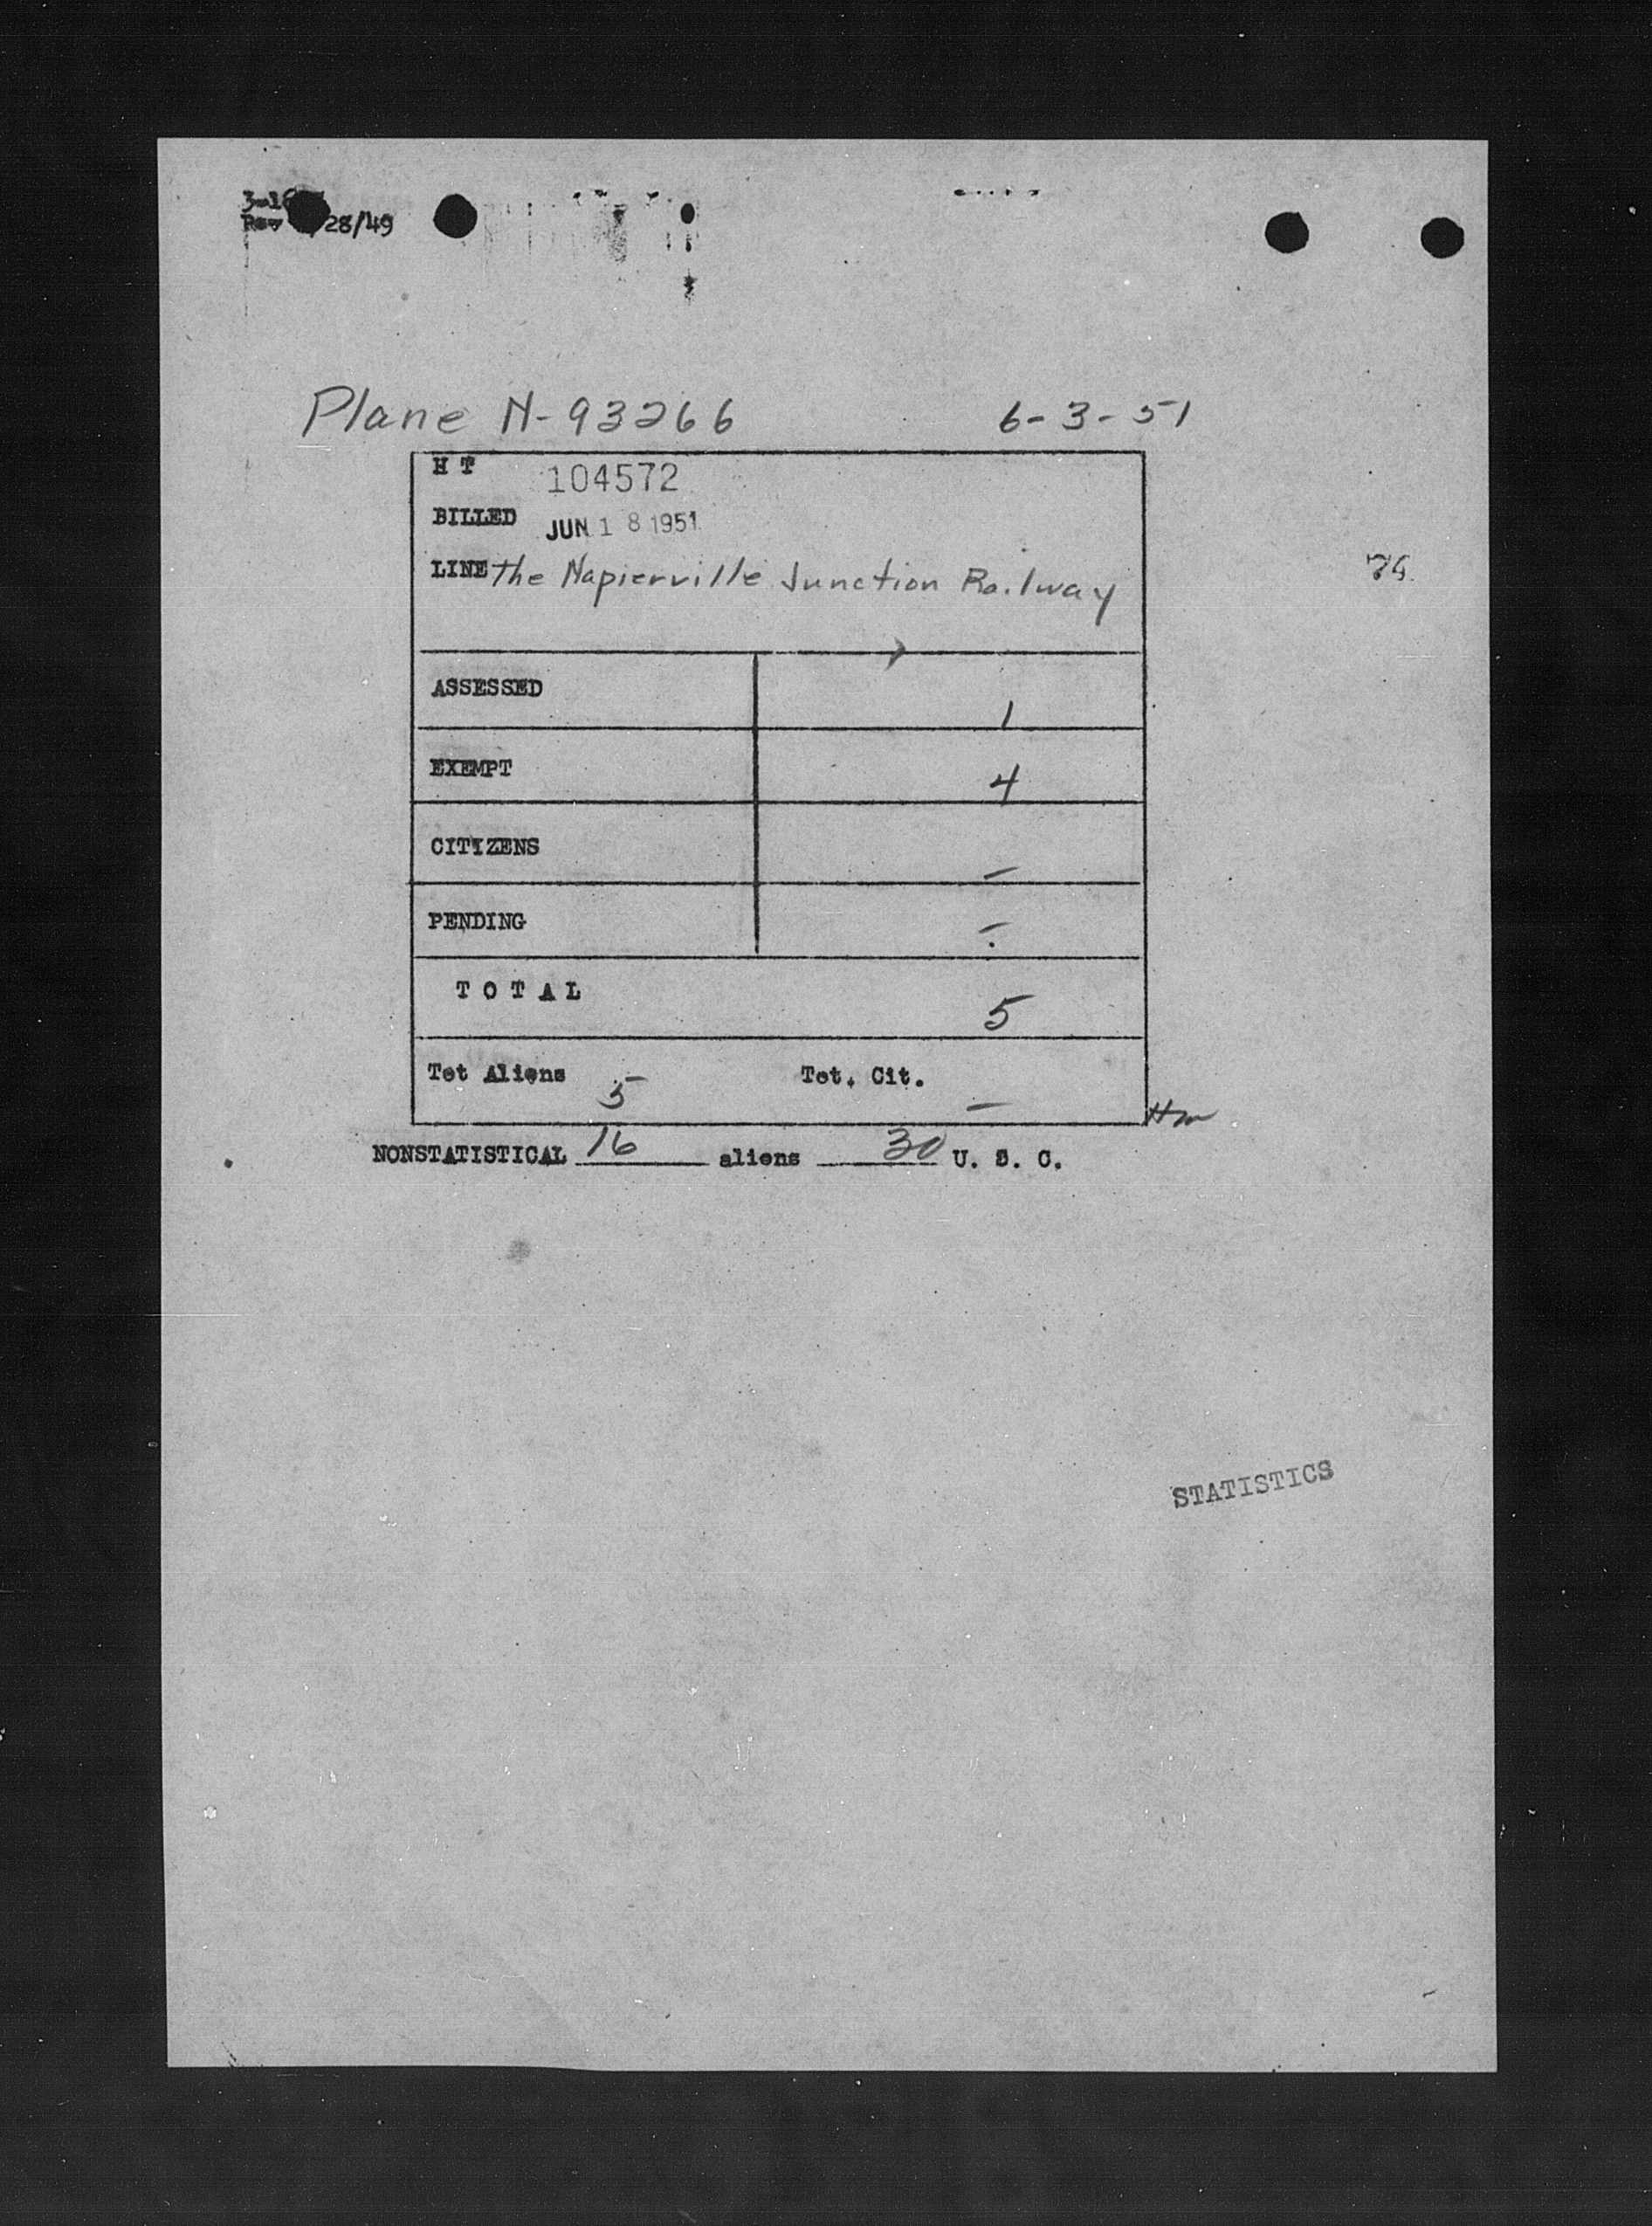 28/49
Plane N-93266 6-3-51
H T 104572
BILLED JUN 18 1951
LINE The Napierville Junction Railway
ASSESSED 1
EXEMPT 4
CITIZENS —
PENDING —
T O T A L 5
Tot Aliens 5 Tot. Cit. —
NONSTATISTICAL 16 aliens 30 U. S. C.
STATISTICS